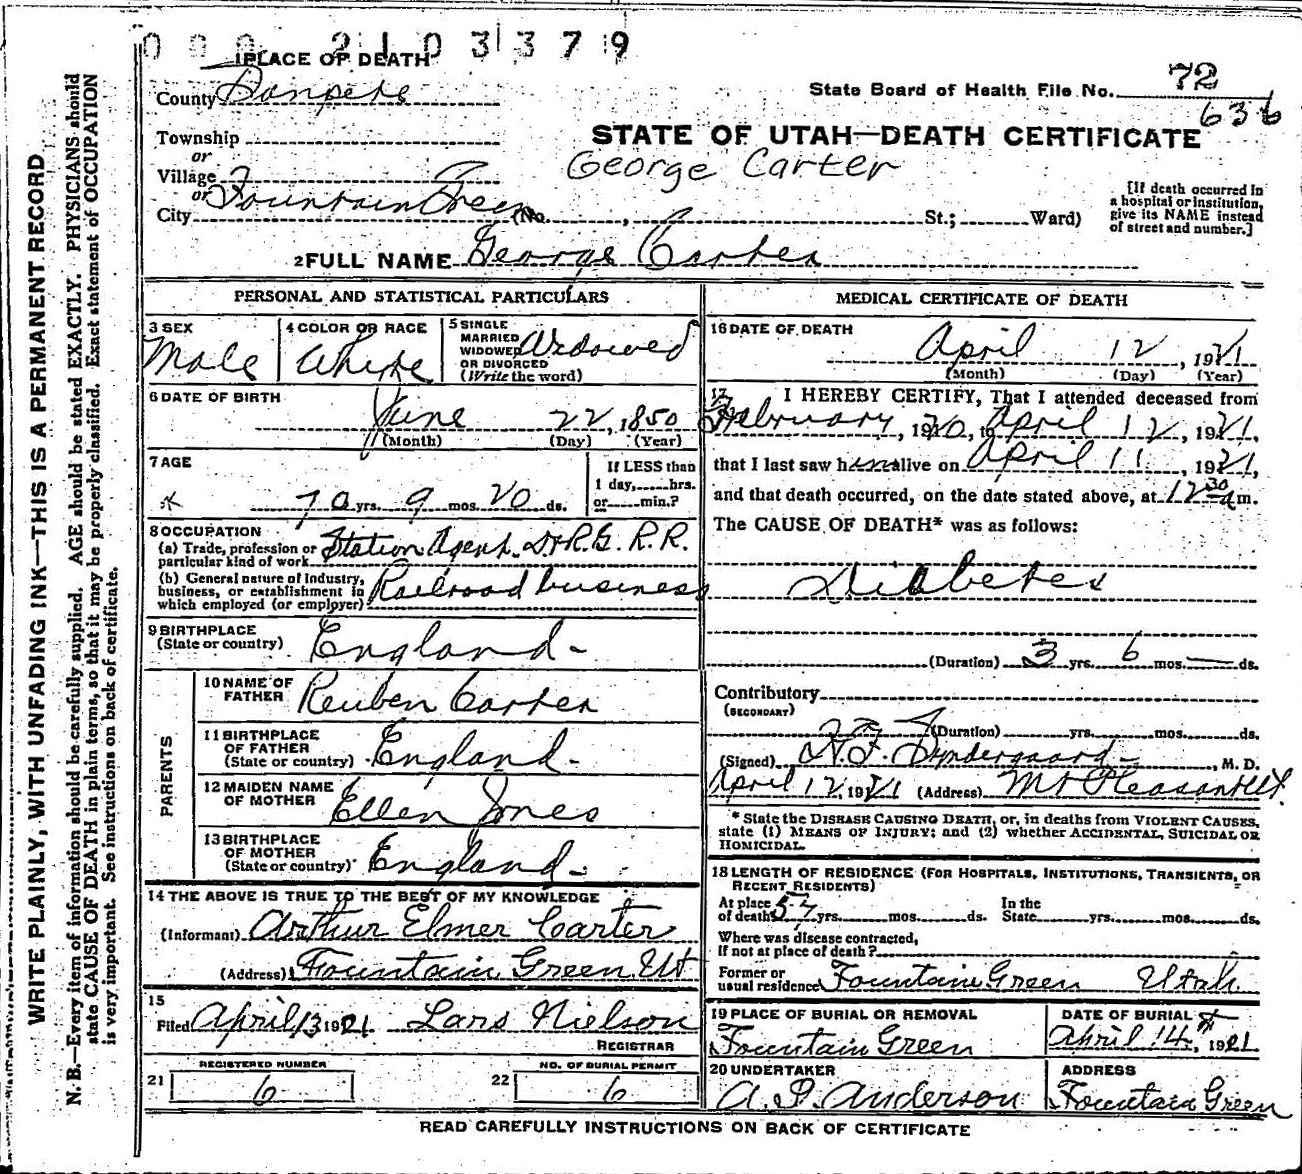 0 0 0 2 1 0 3 3 7 9
1 PLACE OF DEATH
County Sanpete
State Board of Health File No. 72
636
Township
or
Village
or
City Fountain Green (No. , St.; Ward)
STATE OF UTAH—DEATH CERTIFICATE
George Carter
[If death occurred in
a hospital or institution,
give its NAME instead
of street and number.]
2 FULL NAME George Carter
PERSONAL AND STATISTICAL PARTICULARS
3 SEX
Male
4 COLOR OR RACE
White
5 SINGLE
MARRIED
WIDOWED
OR DIVORCED
(Write the word)
Widowed
6 DATE OF BIRTH
June 22, 1850
(Month) (Day) (Year)
7 AGE
70 yrs. 9 mos. 20 ds.
If LESS than
1 day, hrs.
or min.?
8 OCCUPATION
(a) Trade, profession or
particular kind of work Station Agent D & R.G. R.R.
(b) General nature of industry,
business, or establishment in
which employed (or employer) Railroad business
9 BIRTHPLACE
(State or country) England -
PARENTS
10 NAME OF
FATHER Reuben Carter
11 BIRTHPLACE
OF FATHER
(State or country) England -
12 MAIDEN NAME
OF MOTHER Ellen Jones
13 BIRTHPLACE
OF MOTHER
(State or country) England -
14 THE ABOVE IS TRUE TO THE BEST OF MY KNOWLEDGE
(Informant) Arthur Elmer Carter
(Address) Fountain Green Ut
15
Filed April 13 1921 Lars Nielson
REGISTRAR
REGISTERED NUMBER
21 6
NO. OF BURIAL PERMIT
22 6
MEDICAL CERTIFICATE OF DEATH
16 DATE OF DEATH
April 12, 1921
(Month) (Day) (Year)
17 I HEREBY CERTIFY, That I attended deceased from
February, 1920, to April 12, 1921,
that I last saw him alive on April 11, 1921,
and that death occurred, on the date stated above, at 12 30 a m.
The CAUSE OF DEATH* was as follows:
Diabetes
(Duration) 3 yrs. 6 mos. — ds.
Contributory
(SECONDARY)
(Duration) yrs. mos. ds.
(Signed) , M. D.
April 12, 1921 (Address) Mt Pleasant Ut.
* State the DISEASE CAUSING DEATH, or, in deaths from VIOLENT CAUSES,
state (1) MEANS OF INJURY; and (2) whether ACCIDENTAL, SUICIDAL OR
HOMICIDAL.
18 LENGTH OF RESIDENCE (FOR HOSPITALS, INSTITUTIONS, TRANSIENTS, OR
RECENT RESIDENTS)
At place
of death 57 yrs. mos. ds.
In the
State yrs. mos. ds.
Where was disease contracted,
if not at place of death?
Former or
usual residence Fountain Green Utah.
19 PLACE OF BURIAL OR REMOVAL
Fountain Green
DATE OF BURIAL
April 14, 1921
20 UNDERTAKER
A. P. Anderson
ADDRESS
Fountain Green
READ CAREFULLY INSTRUCTIONS ON BACK OF CERTIFICATE
WRITE PLAINLY, WITH UNFADING INK—THIS IS A PERMANENT RECORD
N. B.—Every item of information should be carefully supplied. AGE should be stated EXACTLY. PHYSICIANS should
state CAUSE OF DEATH in plain terms, so that it may be properly classified. Exact statement of OCCUPATION
is very important. See instructions on back of certificate.